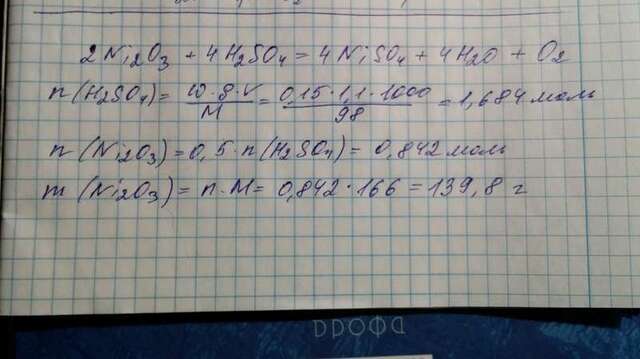 2Ni2O3 + 4H2SO4 = 4NiSO4 + 4H2O + O2
n(H2SO4) = ω·g·V/M = 0,15·1,1·1000/98 = 1,684 моль
n(Ni2O3) = 0,5·n(H2SO4) = 0,842 моль
m(Ni2O3) = n·M = 0,842·166 = 139,8 г
ДРОФА